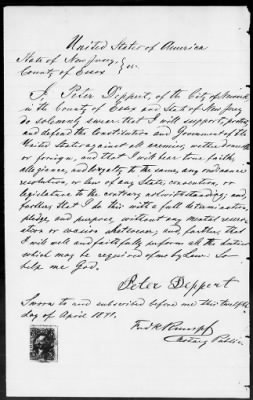 United States of America
State of New Jersey,
County of Essex } ss.
I Peter Deppert, of the City of Newark
in the County of Essex and State of New Jersey
do solemnly swear that I will support, protect
and defend the Constitution and Government of the
United States against all enemies, whether domestic
or foreign, and that I will bear true faith,
allegiance, and loyalty to the same, any ordinance
resolution, or law of any State, convention, or
legislature to the contrary notwithstanding, and
further that I do this with a full determination,
pledge, and purpose, without any mental reser-
vation or evasion whatsoever; and, further, that
I will well and faithfully perform all the duties
which may be required of me by law. So
help me God.
Peter Deppert
Sworn to and subscribed before me this twelfth
day of April 1871.
Notary Public